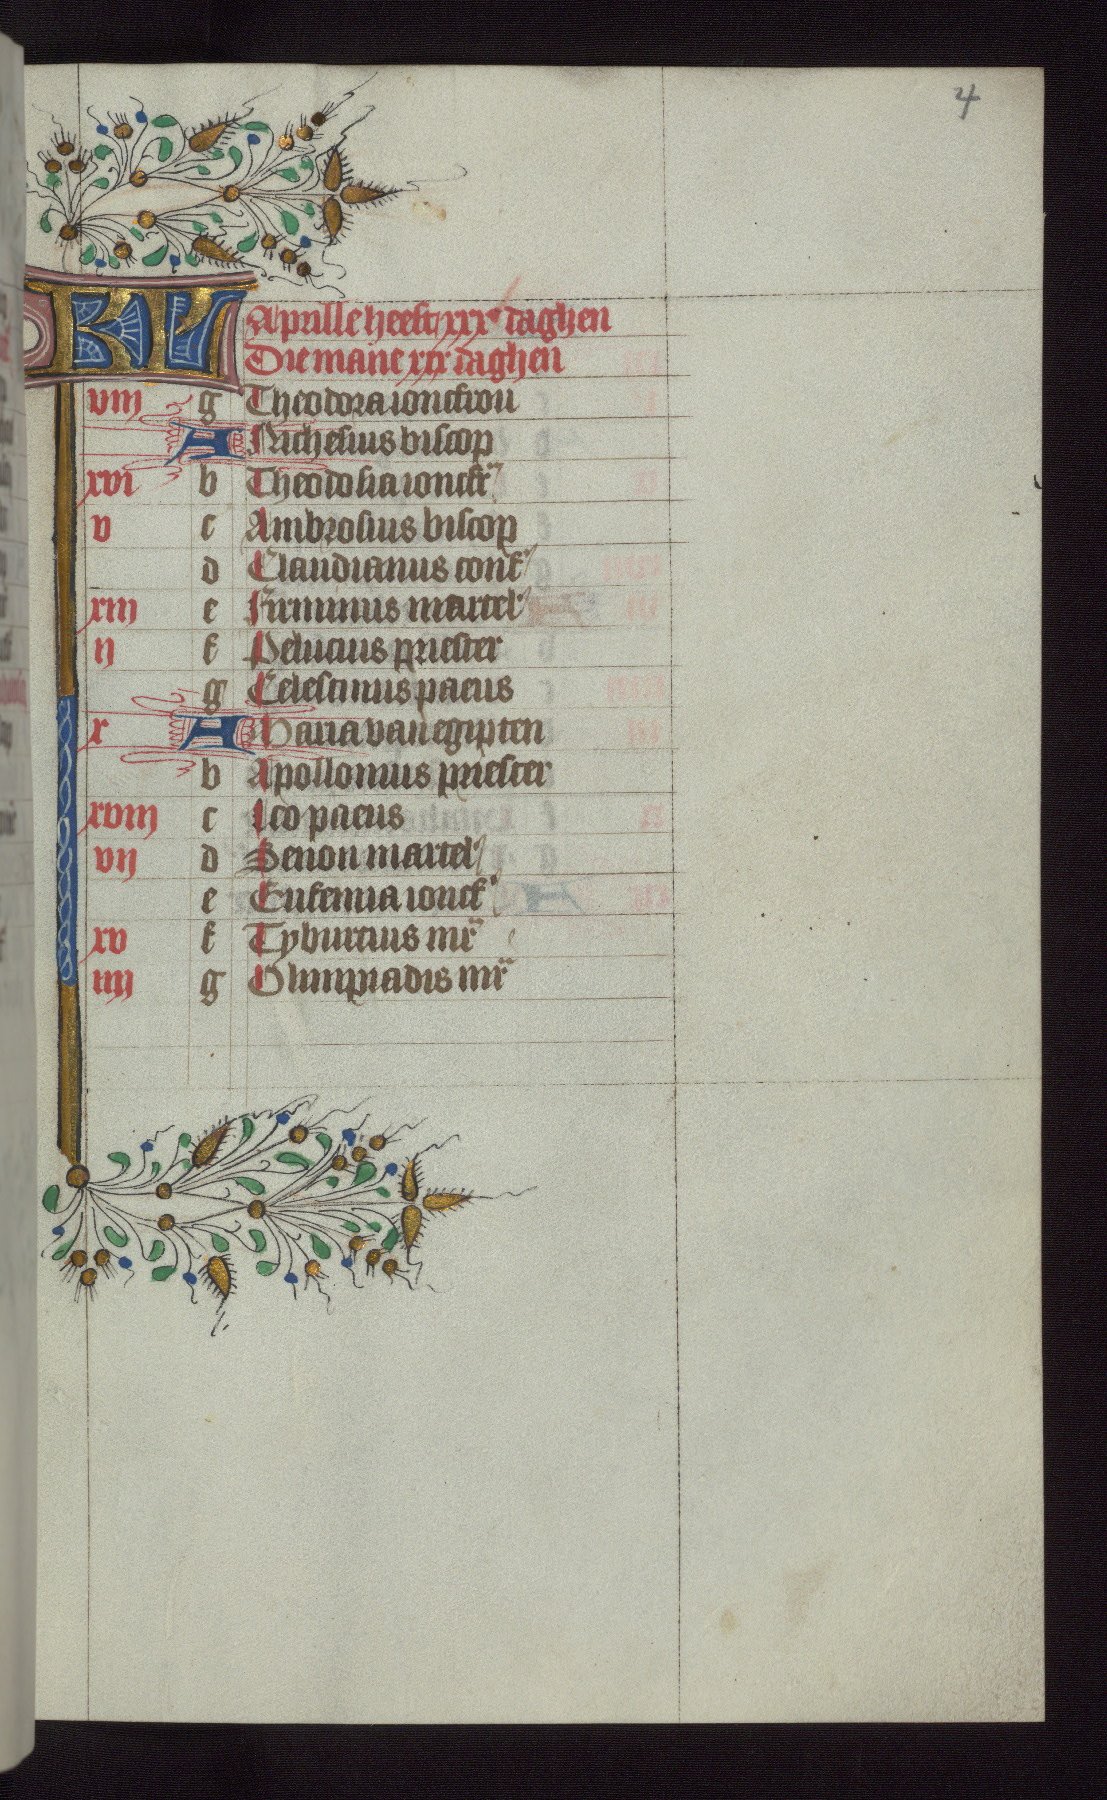 4
KL Aprille heeft xxx daghen
Die mane xxx daghen
viij g Theodora ionckvou
A Nichesius biscop
xvi b Theodosia ionckr
v c Ambrosius biscop
d Claudianus conf
xiij e Firminus martel
ij f Pelucius priester
g Celestinus paeus
x A Maria van egipten
b Apollonius priester
xviij c Leo paeus
vij d Zenon martel
e Eufemia ionck
xv f Tyburcius mr
iiij g Olimpiadis mr